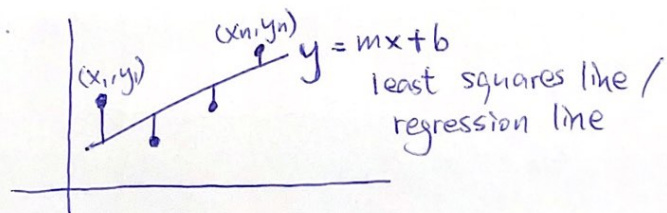 (xn, yn)
y = mx+b
(x1, y1)
least squares line /
regression line